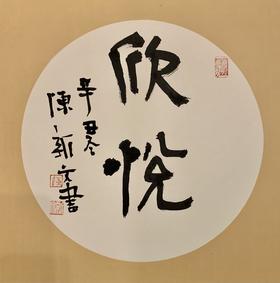 欣悦
辛丑冬
陳新文書